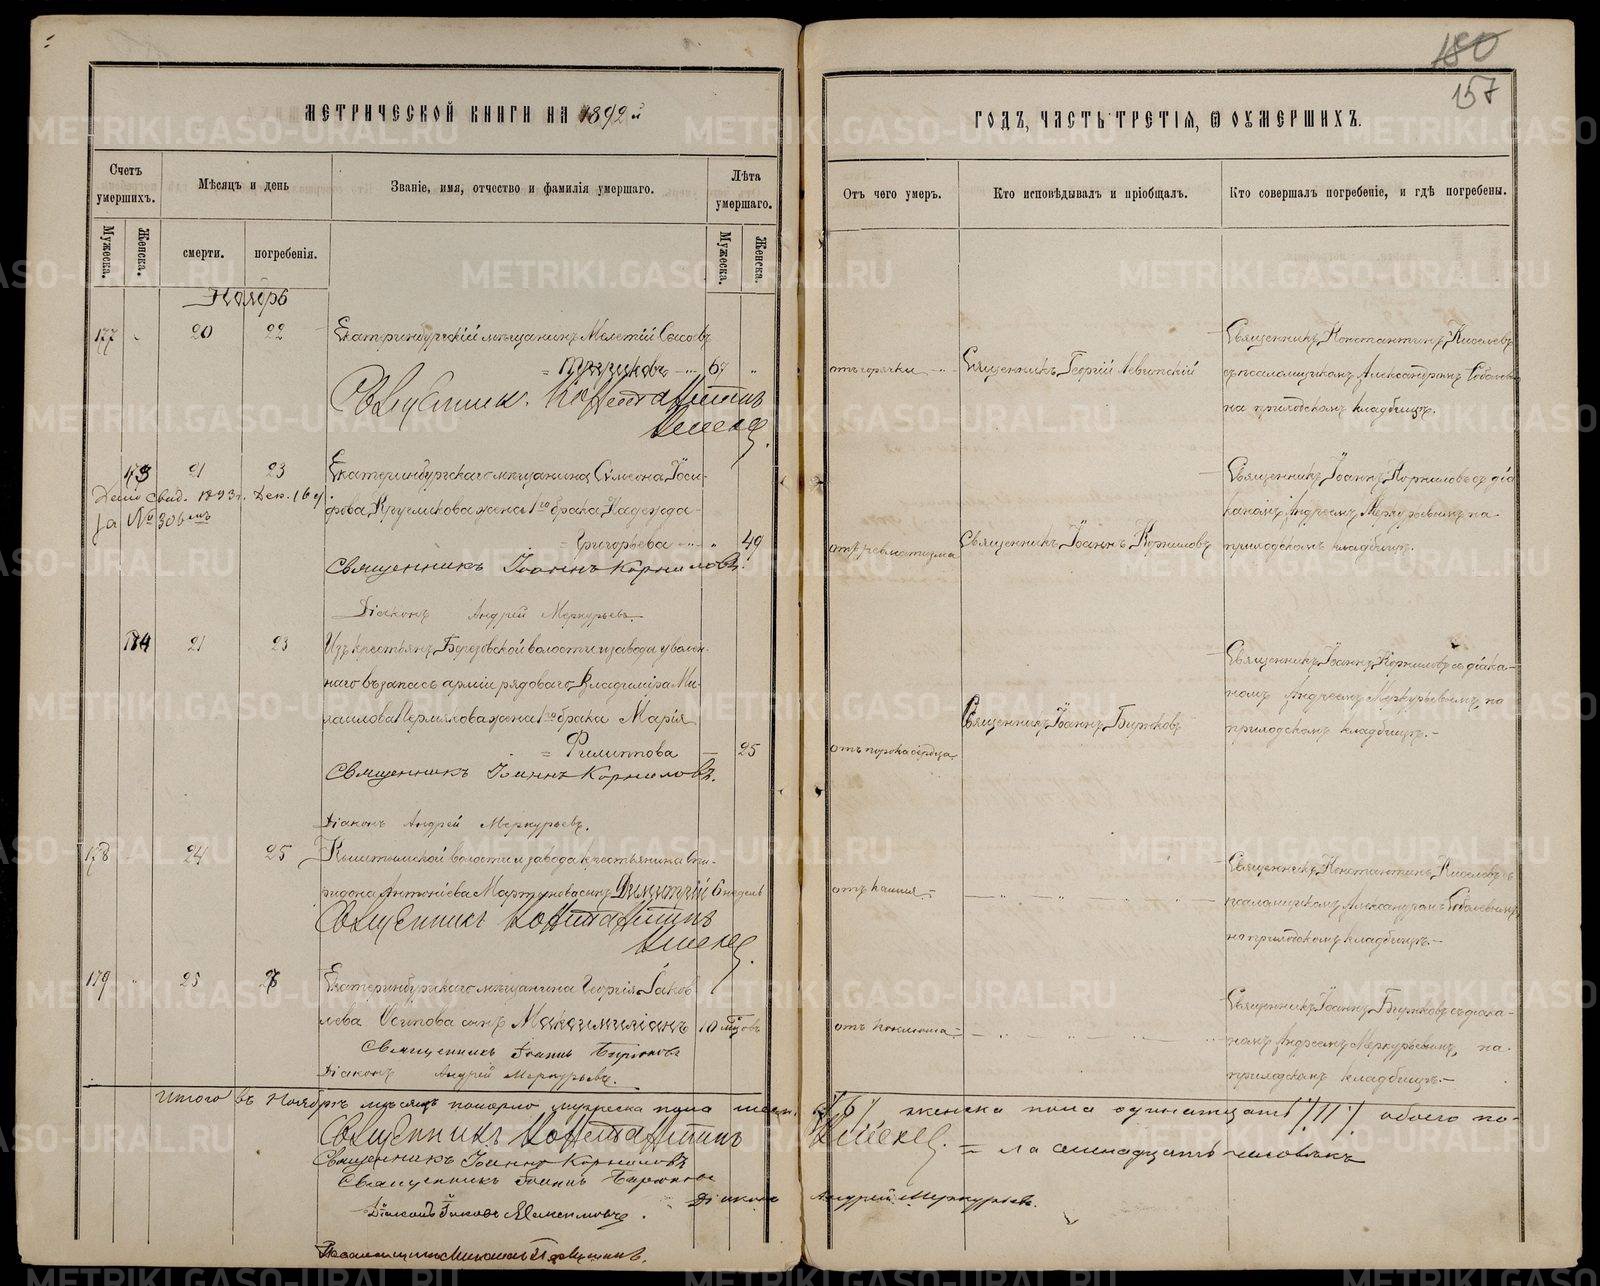 180
157
МЕТРИЧЕСКОЙ КНИГИ НА 1892 й
ГОДЪ, ЧАСТЬ ТРЕТІЯ, Ѿ ОУМЕРШИХЪ.
Счетъ умершихъ.
Мѣсяцъ и день
Званіе, имя, отчество и фамилія умершаго.
Лѣта умершаго.
Отъ чего умеръ.
Кто исповѣдывалъ и пріобщалъ.
Кто совершалъ погребеніе, и гдѣ погребены.
Мужеска.
Женска.
смерти.
погребенія.
Мужеска.
Женска.
Ноябрь
177 20 22 Екатеринбургскій мѣщанинъ Мелетій
67
отъ горячки
Священникъ Георгій Левитскій
Священникъ Константинъ Киселевъ
съ псаломщикомъ Александромъ
на приходскомъ кладбищѣ.
Священникъ Константинъ
Киселев.
21 23 Екатеринбургскаго мѣщанина Сѵмеона Іоси-
фова Кругликова жена 1го брака Надежда
Григорьева 49
Дано свид. 1893 г. Дек. 16 ч.
за № 306 мъ
отъ ревматизма
Священникъ Іоаннъ Корниловъ
Священникъ Іоаннъ Корниловъ съ діа
кономъ Андреемъ Меркурьевымъ на
приходскомъ кладбищѣ.
Священникъ Іоаннъ Корниловъ.
Діаконъ Андрей Меркурьевъ
21 23 Изъ крестьянъ Березовской волости и завода уволен-
наго въ запасъ арміи рядоваго Владиміра Ми-
хаилова Пермякова жена 1го брака Марія
Филиппова 25
отъ порока сердца
Священникъ Іоаннъ Бирюковъ
Священникъ Іоаннъ Корниловъ съ діако-
номъ Андреемъ Меркурьевымъ, на
приходскомъ кладбищѣ.
Священникъ Іоаннъ Корниловъ.
Діаконъ Андрей Меркурьевъ.
178 24 25 Кыштымской волости и завода крестьянина Спи-
ридона Антоніева Мартynова сынъ Димитрій 6 недѣль
отъ кашля
Священникъ Константинъ Киселевъ съ
псаломщикомъ Александромъ
на приходскомъ кладбищѣ.
Священникъ Константинъ
Киселев.
179 25 26 Екатеринбургскаго мѣщанина Георгія Іаков
лева Осипова сынъ Максимиліанъ 10 мѣсяцовъ
отъ коклюша
Священникъ Іоаннъ Бирюковъ съ діако-
номъ Андреемъ Меркурьевымъ, на
приходскомъ кладбищѣ.
Священникъ Іоаннъ Бирюковъ
Діаконъ Андрей Меркурьевъ.
Итого въ Ноябрѣ мѣсяцѣ померло мужеска пола шесть /6/ женска пола одинатцать /11/ обоего по-
ла семнадцать человѣкъ
Священникъ Константинъ Киселев.
Священникъ Іоаннъ Корниловъ
Священникъ Іоаннъ Бирюковъ
Діаконъ Андрей Меркурьевъ.
Діаконъ Іаковъ
Псаломщикъ Николай
METRIKI.GASO-URAL.RU